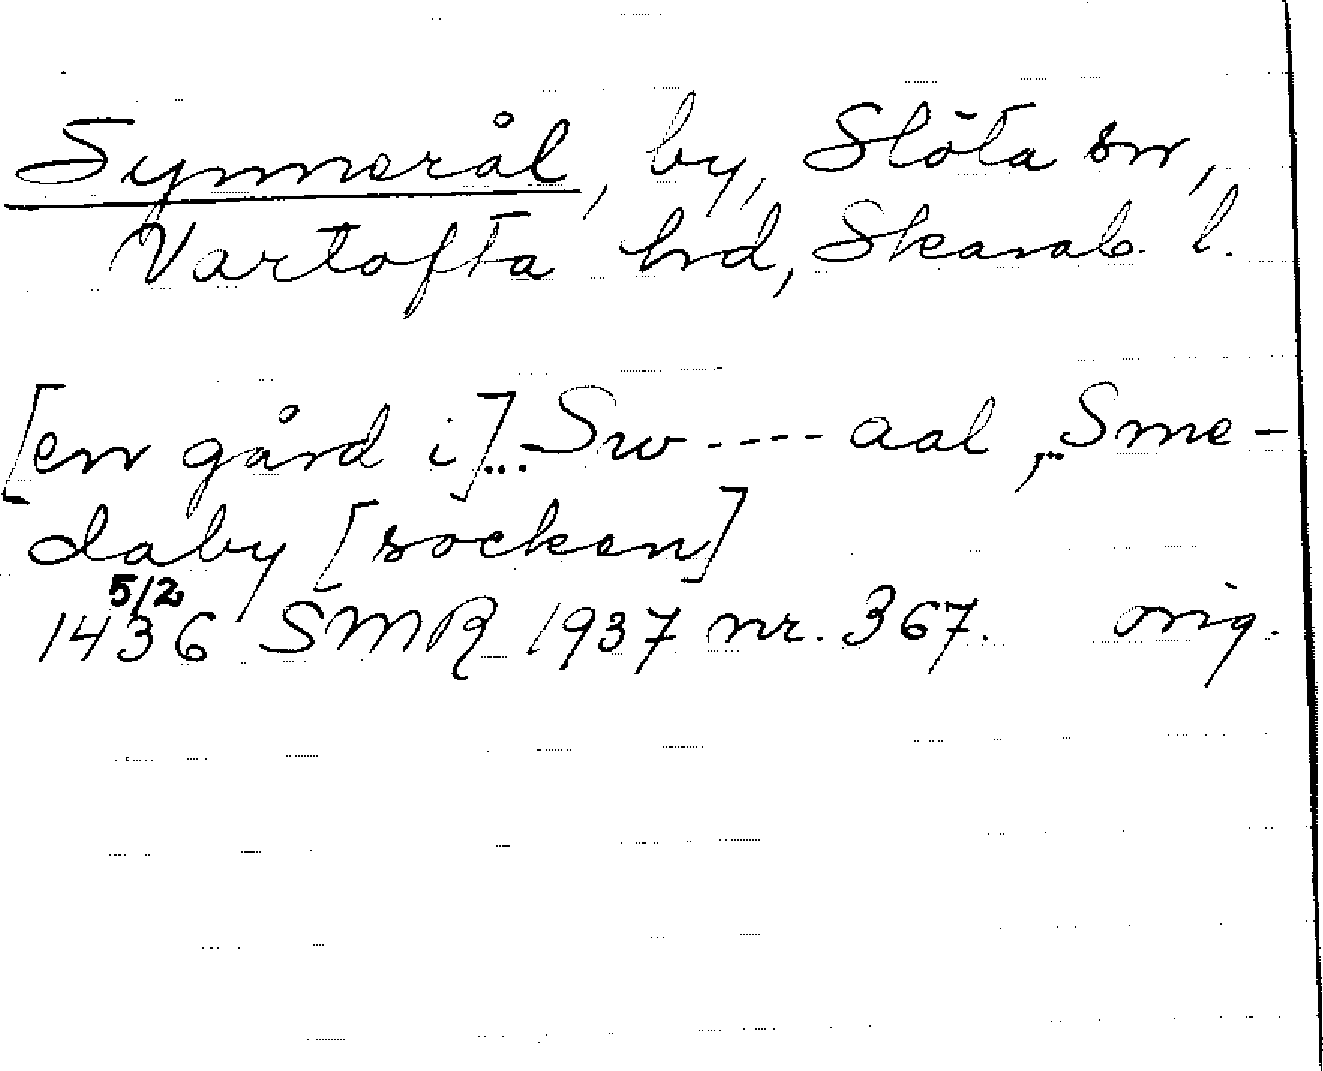 Synnerål, by, Slöta sn,
Vartofta hd, Skarab. l.
[en gård i]... Sw----aal, ...Sme-
daby [socken]
5/2
1436 SMR 1937 nr. 367. orig.